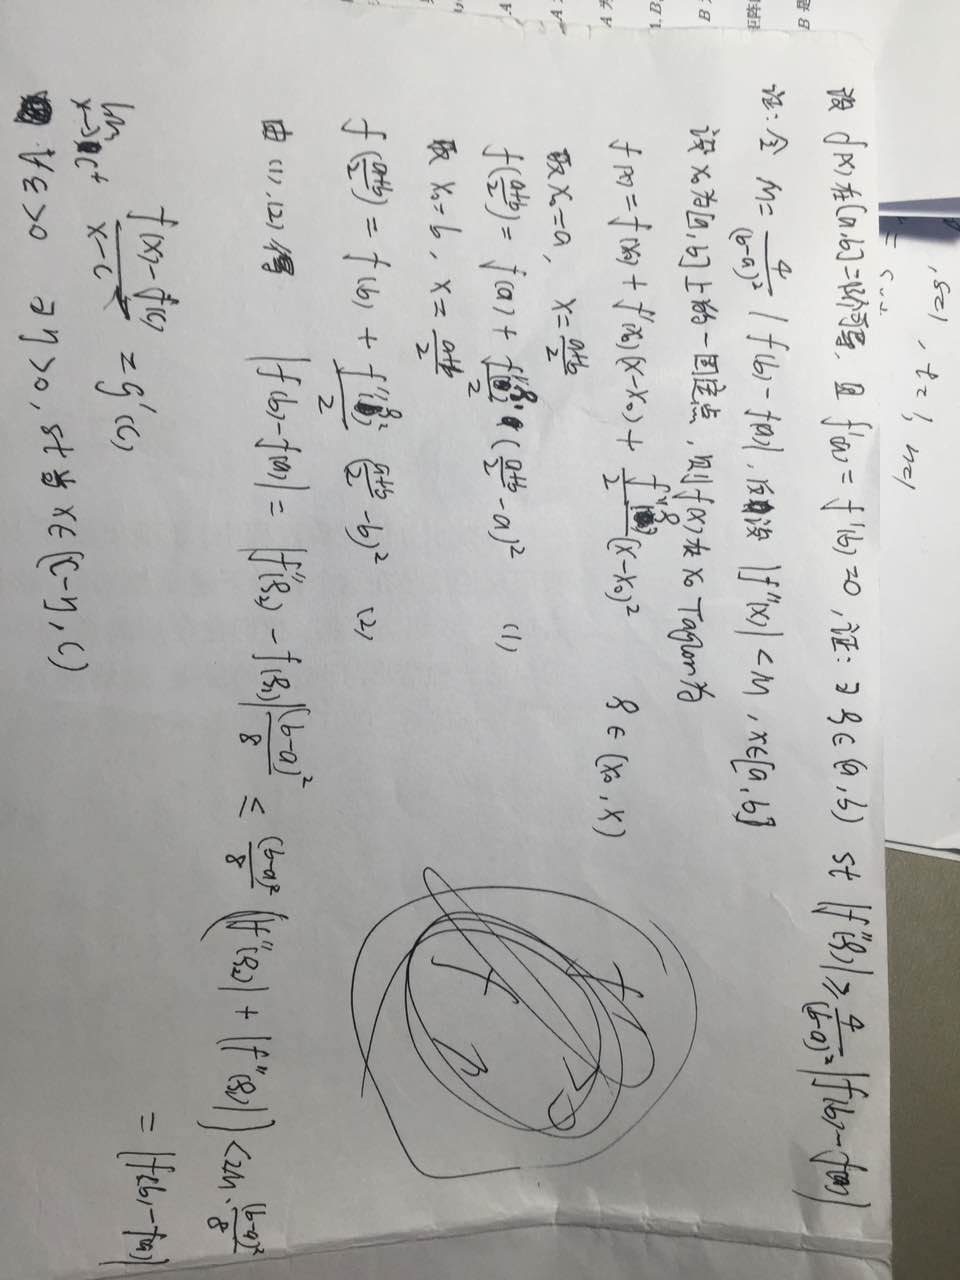 设 f(x) 在[a,b]二阶可导, 且 f'(a) = f'(b) = 0, 证: ∃ ξ ∈ (a,b) st |f''(ξ)| ≥ 4/(b-a)² |f(b) - f(a)|
证: 令 M = 4/(b-a)² |f(b) - f(a)|, 设 |f''(x)| < M, x∈[a,b]
设 x₀ 为[a,b]上的一固定点, 则 f(x) 在 x₀ Taylor为
f(x) = f(x₀) + f'(x₀)(x-x₀) + f''(ξ)/2 (x-x₀)² ξ ∈ (x₀, x)
取 x₀ = a, x = (a+b)/2
f((a+b)/2) = f(a) + f''(ξ₁)/2 ((a+b)/2 - a)² (1)
取 x₀ = b, x = (a+b)/2
f((a+b)/2) = f(b) + f''(ξ₂)/2 ((a+b)/2 - b)² (2)
由 (1), (2) 得 |f(b) - f(a)| = |f''(ξ₂) - f''(ξ₁)| (b-a)²/8 ≤ (b-a)²/8 (|f''(ξ₂)| + |f''(ξ₁)|) < 2M · (b-a)²/8
= |f(b) - f(a)|
lim x→c⁺ (f(x) - f(c))/(x-c) = g'(c)
∀ε>0 ∃η>0, st 当 x∈(c-η, c)